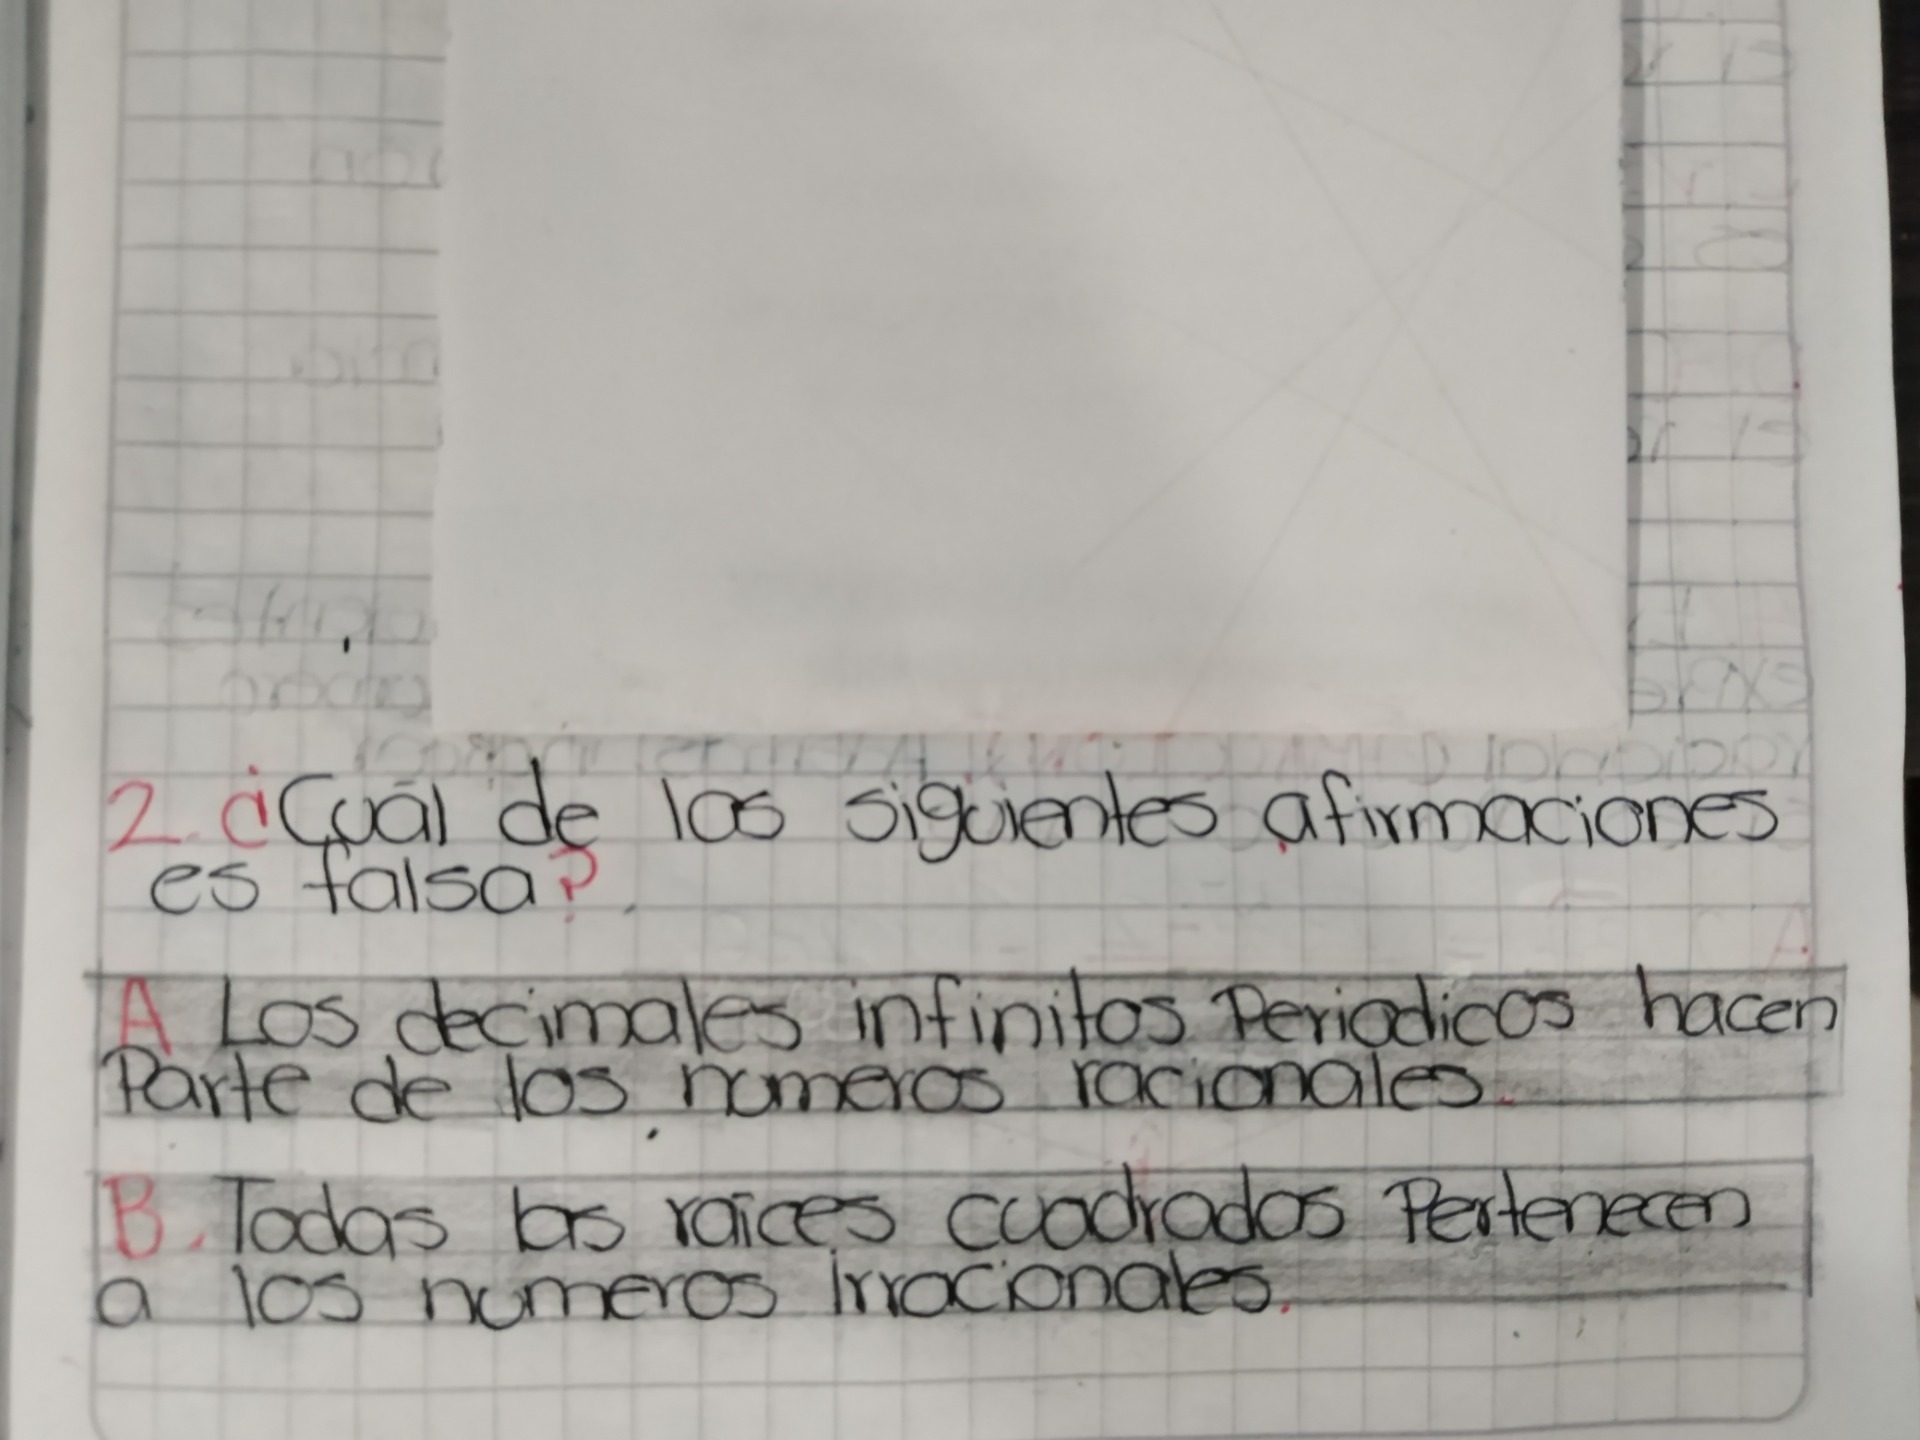 2. ¿Cuál de las siguientes afirmaciones
es falsa?
A Los decimales infinitos Periodicos hacen
Parte de los numeros racionales.
B. Todas las raices cuadradas Pertenecen
a los numeros irracionales.